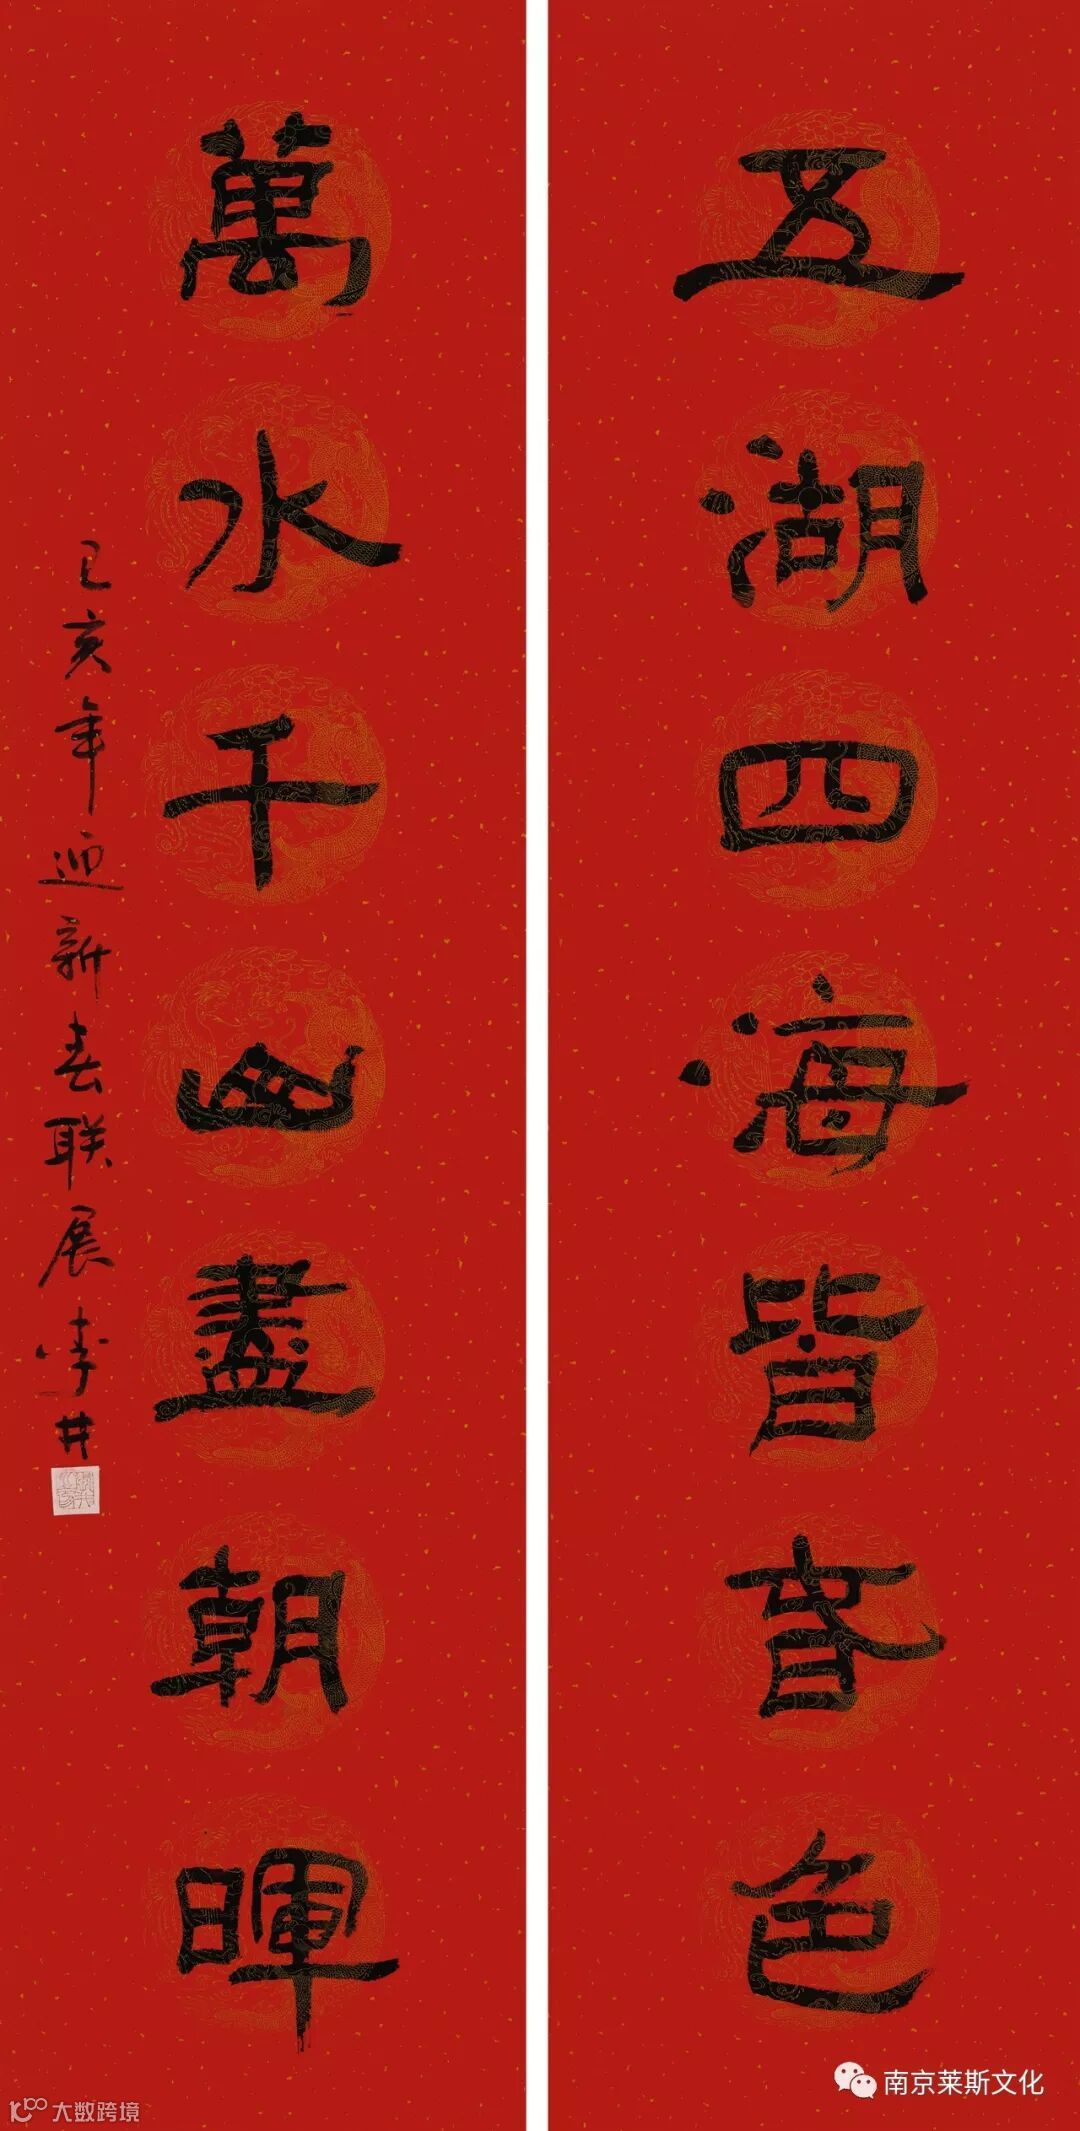 五湖四海皆春色
萬水千山盡朝暉
己亥年迎新春联展李井
南京莱斯文化
大数跨境